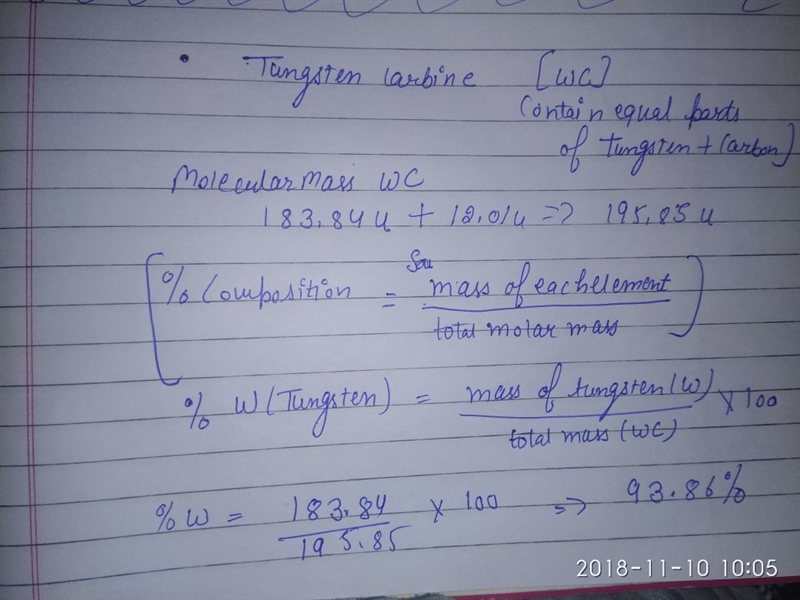 • Tungsten Carbine [WC]
Contain equal parts
of tungsten + Carbon]
Molecular mass WC
183.84 u + 12.01u => 195.85 u
% Composition = mass of each element
total molar mass
% W (Tungsten) = mass of tungsten (W) × 100
total mass (WC)
% W = 183.84 × 100 => 93.86%
195.85
2018-11-10 10:05